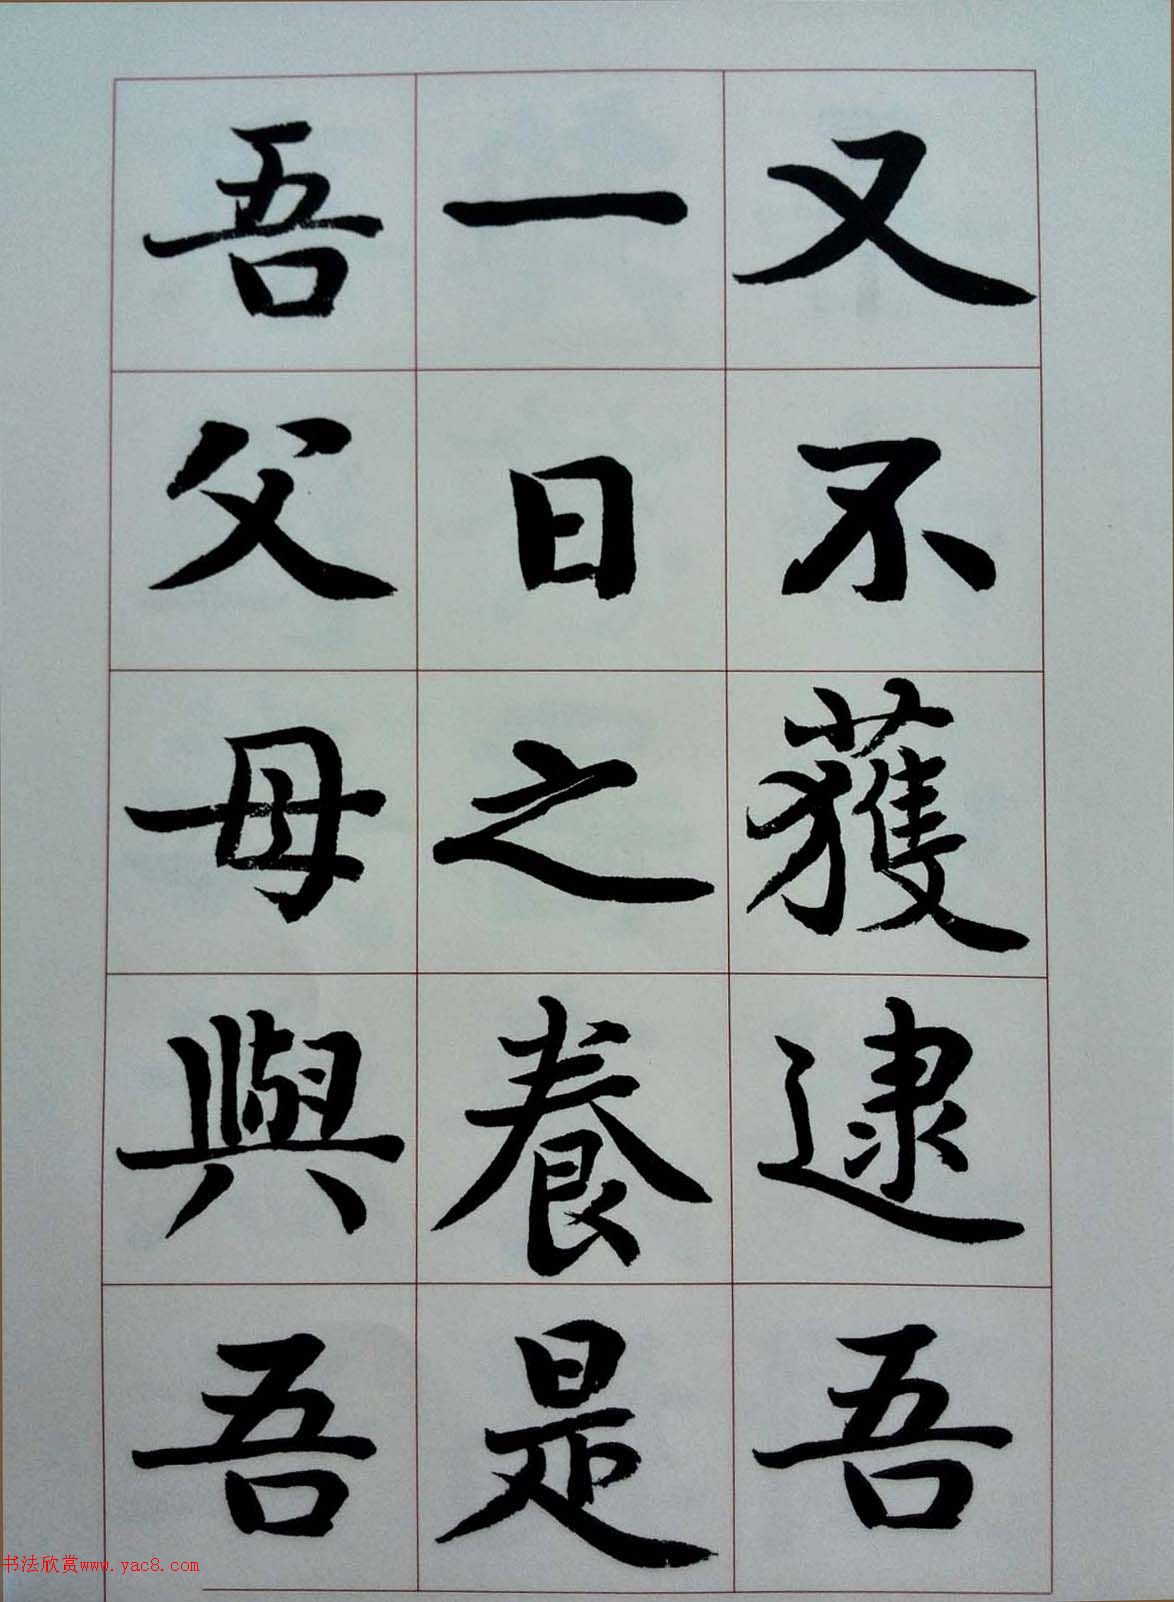 又不獲逮吾
一日之養是
吾父母與吾
书法欣赏www.yac8.com